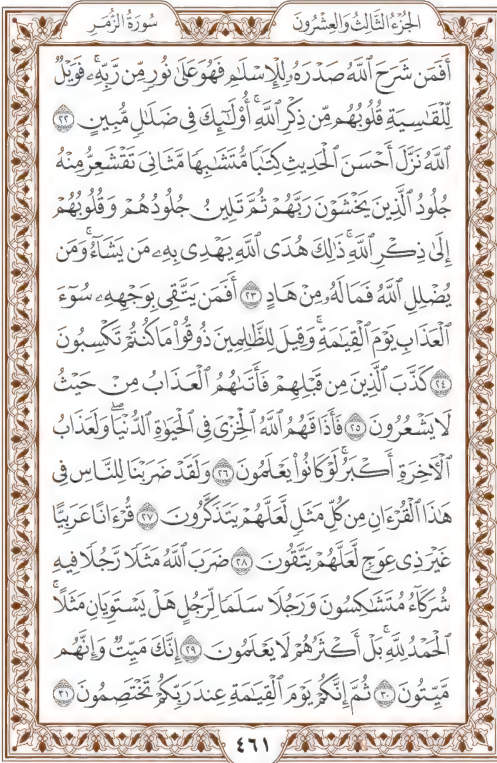 الجزء الثالث والعشرون سورة الزمر
أَفَمَن شَرَحَ ٱللَّهُ صَدۡرَهُۥ لِلۡإِسۡلَٰمِ فَهُوَ عَلَىٰ نُورٖ مِّن رَّبِّهِۦۚ فَوَيۡلٞ
لِّلۡقَٰسِيَةِ قُلُوبُهُم مِّن ذِكۡرِ ٱللَّهِۚ أُوْلَٰٓئِكَ فِي ضَلَٰلٖ مُّبِينٍ ٢٢
ٱللَّهُ نَزَّلَ أَحۡسَنَ ٱلۡحَدِيثِ كِتَٰبٗا مُّتَشَٰبِهٗا مَّثَانِيَ تَقۡشَعِرُّ مِنۡهُ
جُلُودُ ٱلَّذِينَ يَخۡشَوۡنَ رَبَّهُمۡ ثُمَّ تَلِينُ جُلُودُهُمۡ وَقُلُوبُهُمۡ
إِلَىٰ ذِكۡرِ ٱللَّهِۚ ذَٰلِكَ هُدَى ٱللَّهِ يَهۡدِي بِهِۦ مَن يَشَآءُۚ وَمَن
يُضۡلِلِ ٱللَّهُ فَمَا لَهُۥ مِنۡ هَادٍ ٢٣ أَفَمَن يَتَّقِي بِوَجۡهِهِۦ سُوٓءَ
ٱلۡعَذَابِ يَوۡمَ ٱلۡقِيَٰمَةِۚ وَقِيلَ لِلظَّٰلِمِينَ ذُوقُواْ مَا كُنتُمۡ تَكۡسِبُونَ
٢٤ كَذَّبَ ٱلَّذِينَ مِن قَبۡلِهِمۡ فَأَتَىٰهُمُ ٱلۡعَذَابُ مِنۡ حَيۡثُ
لَا يَشۡعُرُونَ ٢٥ فَأَذَاقَهُمُ ٱللَّهُ ٱلۡخِزۡيَ فِي ٱلۡحَيَوٰةِ ٱلدُّنۡيَاۖ وَلَعَذَابُ
ٱلۡأٓخِرَةِ أَكۡبَرُۚ لَوۡ كَانُواْ يَعۡلَمُونَ ٢٦ وَلَقَدۡ ضَرَبۡنَا لِلنَّاسِ فِي
هَٰذَا ٱلۡقُرۡءَانِ مِن كُلِّ مَثَلٖ لَّعَلَّهُمۡ يَتَذَكَّرُونَ ٢٧ قُرۡءَانًا عَرَبِيًّا
غَيۡرَ ذِي عِوَجٖ لَّعَلَّهُمۡ يَتَّقُونَ ٢٨ ضَرَبَ ٱللَّهُ مَثَلٗا رَّجُلٗا فِيهِ
شُرَكَآءُ مُتَشَٰكِسُونَ وَرَجُلٗا سَلَمٗا لِّرَجُلٍ هَلۡ يَسۡتَوِيَانِ مَثَلًاۚ
ٱلۡحَمۡدُ لِلَّهِۚ بَلۡ أَكۡثَرُهُمۡ لَا يَعۡلَمُونَ ٢٩ إِنَّكَ مَيِّتٞ وَإِنَّهُم
مَّيِّتُونَ ٣٠ ثُمَّ إِنَّكُمۡ يَوۡمَ ٱلۡقِيَٰمَةِ عِندَ رَبِّكُمۡ تَخۡتَصِمُونَ ٣١
٤٦١